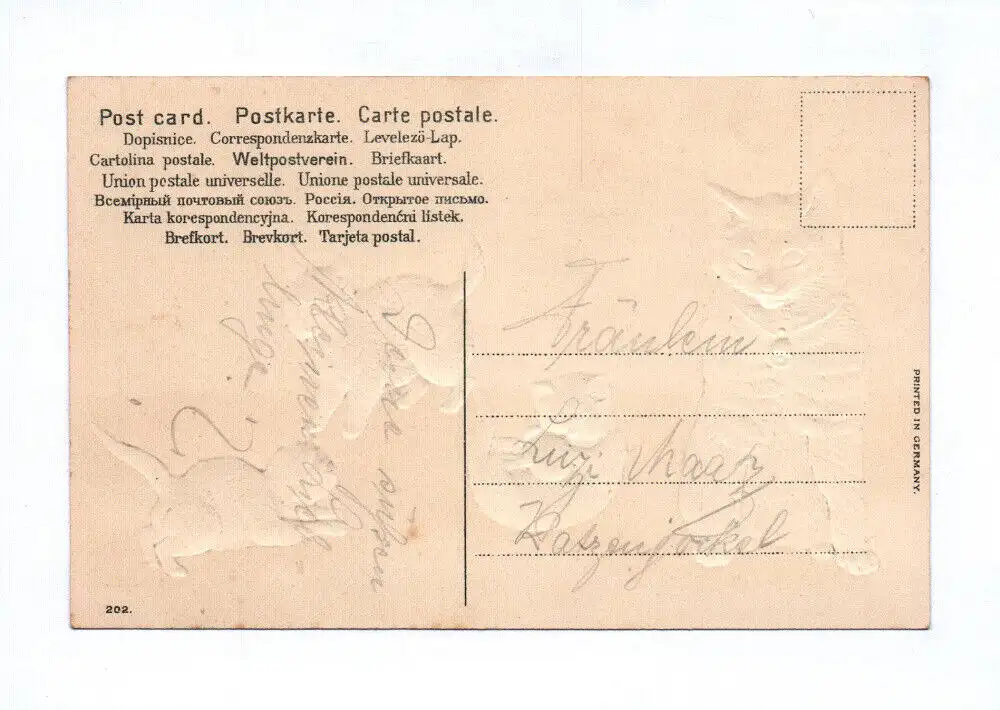 Post card. Postkarte. Carte postale.
Dopisnice. Correspondenzkarte. Levelező-Lap.
Cartolina postale. Weltpostverein. Briefkaart.
Union postale universelle. Unione postale universale.
Всемірный почтовый союзъ. Россія. Открытое письмо.
Karta korespondencyjna. Korespondenční lístek.
Brefkort. Brevkort. Tarjeta postal.
süßen
Fräulein
Luzi Maaz
PRINTED IN GERMANY.
202.